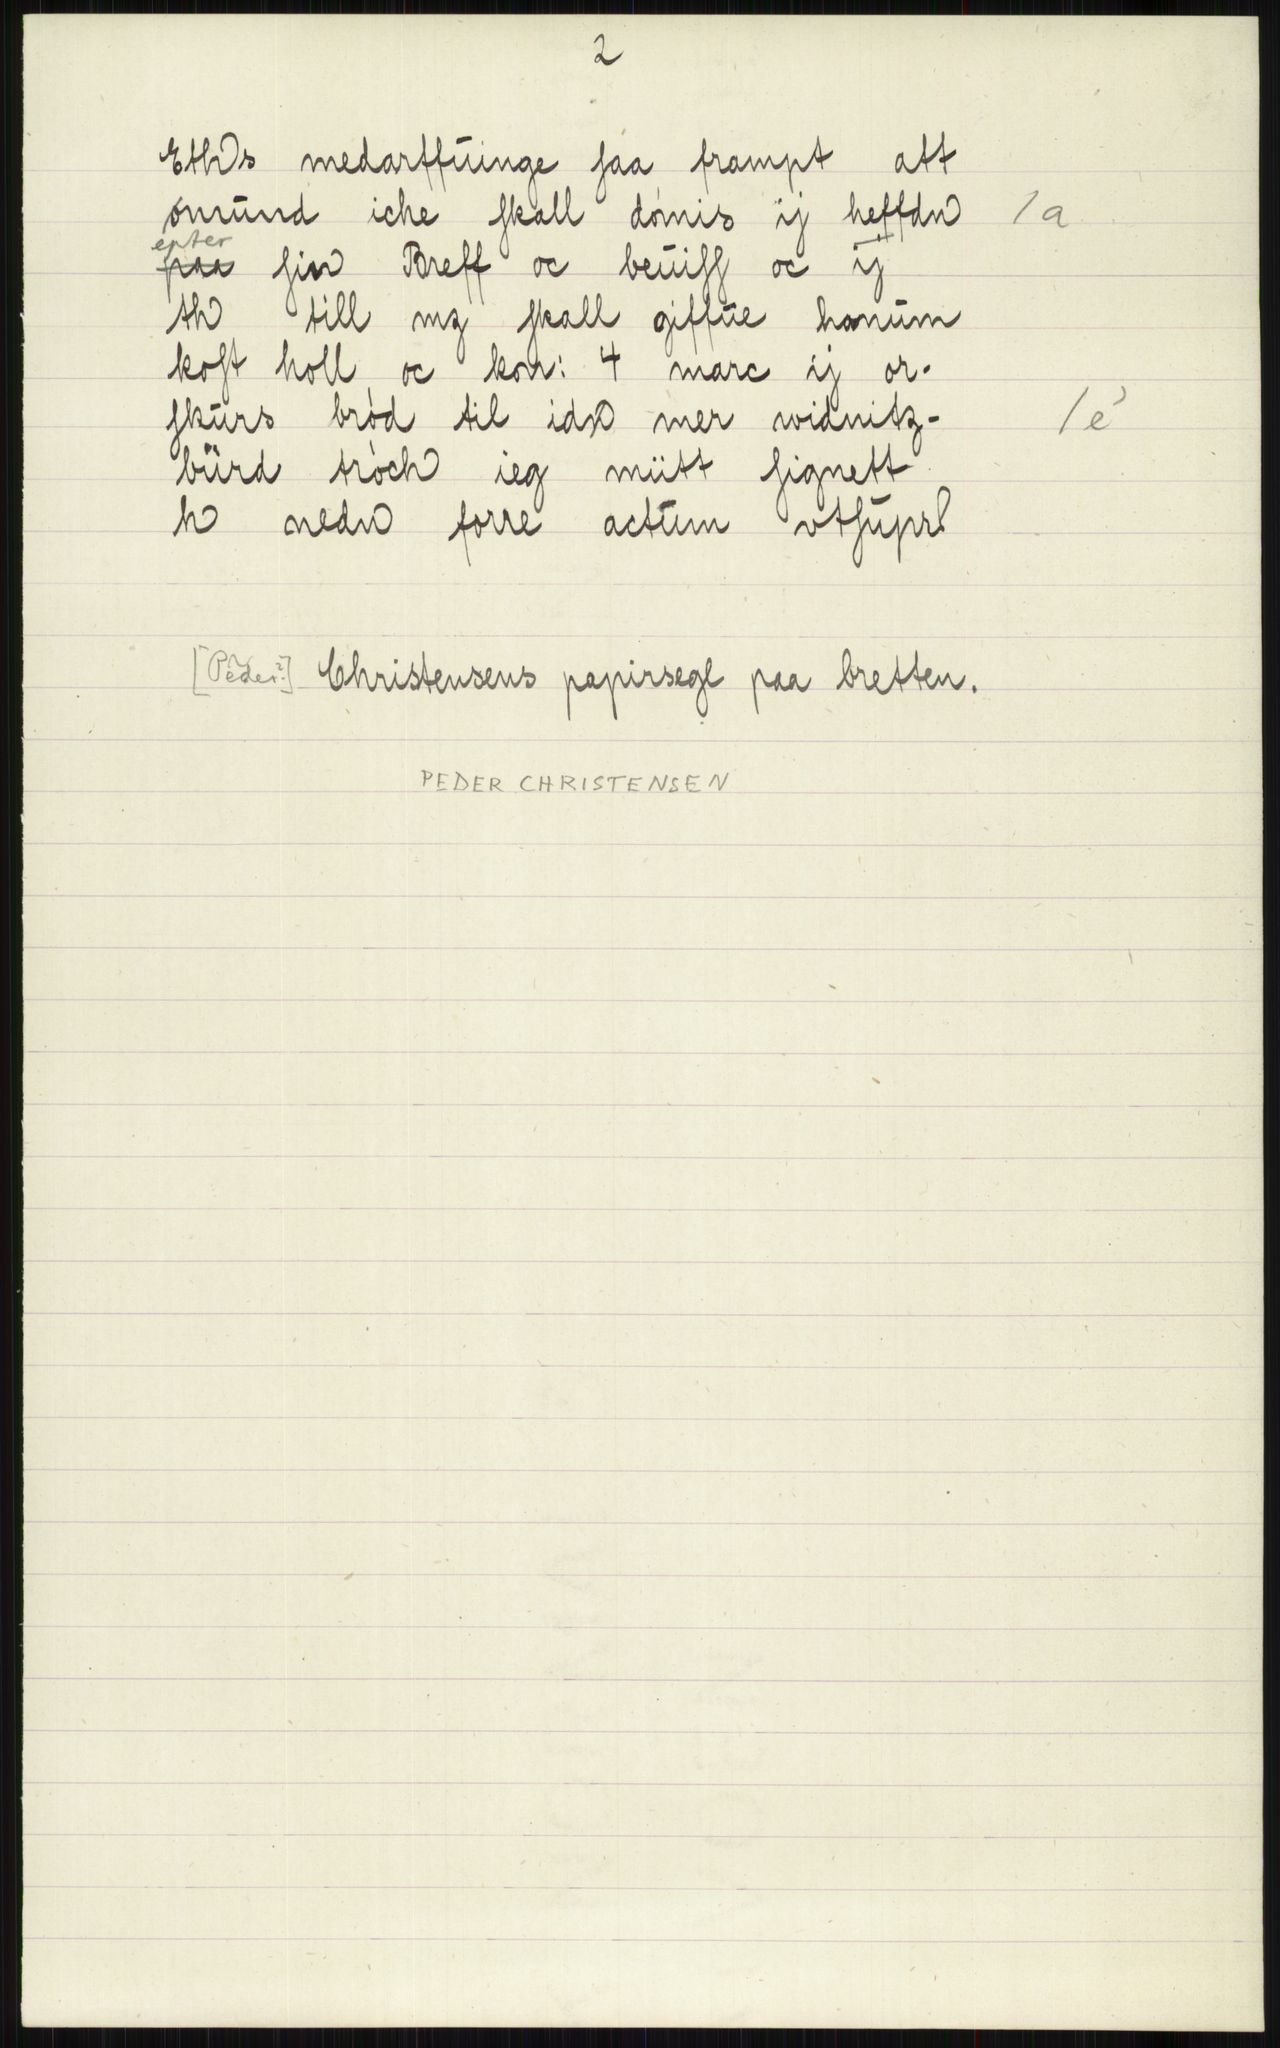 2
Eths medarffuinge saa frampt att
ømund iche skall dømis ij heffdn /a
epter
paa sin Breff oc beuiss oc ij
th till mz skall giffue hanum
kost holl oc kon: 4 marc ij or-
skurs brød til idn mer widnitz- /e
burd trøch ieg mütt signett
h nedn forre actum vtsupr
[Peder?] Christensens papirsegl paa bretten.
PEDER CHRISTENSEN